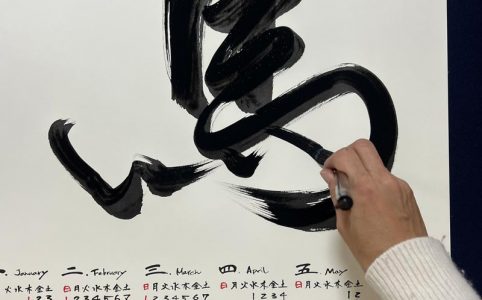 January 二. February 三. March 四. April 五. May
火水木金土 日月火水木金土 日月火水木金土 日月火水木金土 日月火水木金土
1 2 3 1 2 3 4 5 6 7 1 2 3 4 5 6 7 1 2 3 4 1 2